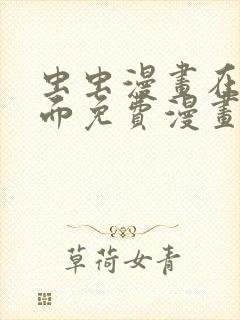 虫虫漫畫在
而免費漫畫
草荷女青